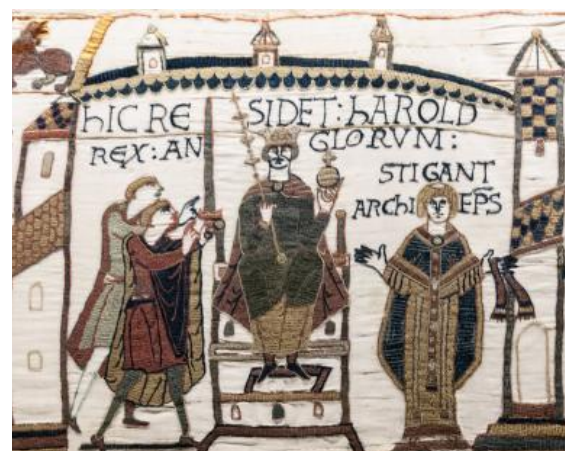 hIC RE SIDET: hAROLD
REX: AN GLORVM:
STIGANT
ARChI EP̅S